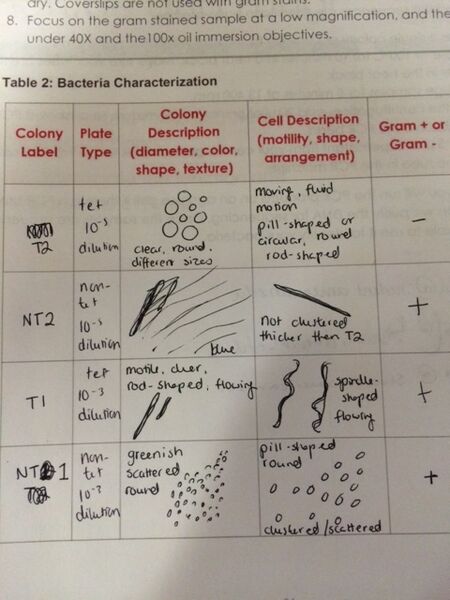 dry. Coverslips are not used with gram stains.
8. Focus on the gram stained sample at a low magnification, and the
under 40X and the 100x oil immersion objectives.
Table 2: Bacteria Characterization
Colony
Label
Plate
Type
Colony
Description
(diameter, color,
shape, texture)
Cell Description
(motility, shape,
arrangement)
Gram + or
Gram -
T2
tet
10-5
dilution
clear, round,
different sizes
moving, fluid
motion
pill-shaped or
circular, round
rod-shaped
-
NT2
non-
tet
10-5
dilution
blue
not clustered
thicker then T2
+
T1
tet
10-3
dilution
motile, clear,
rod-shaped, flowing
spindle-
shaped
flowing
+
NT 1
non-
tet
10-3
dilution
greenish
scattered
round
pill-shaped
round
clustered/scattered
+